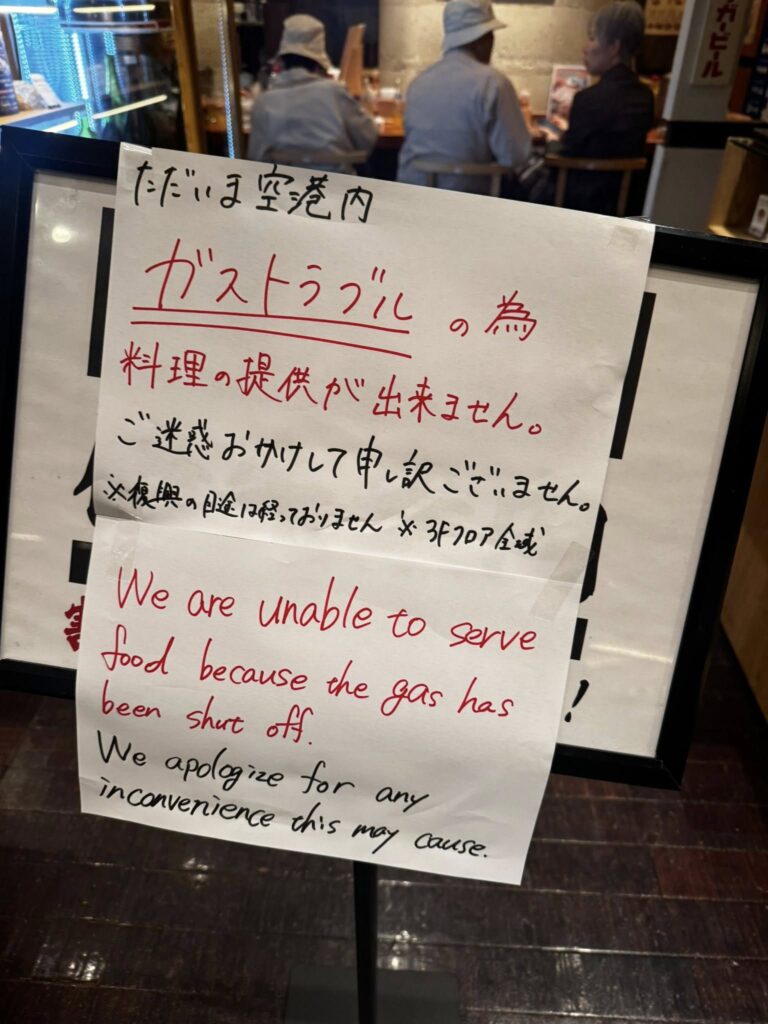 ガービール
ただいま空港内
ガストラブルの為
料理の提供が出来ません。
ご迷惑おかけして申し訳ございません。
※復興の目途は経っておりません ※3Fフロア全域
We are unable to serve
food because the gas has
been shut off.
We apologize for any
inconvenience this may cause.
!